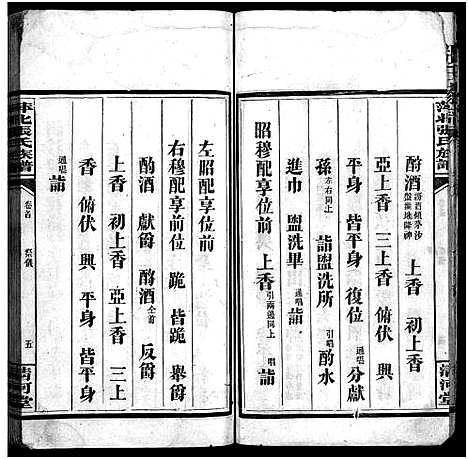 酹酒 上香 初上香
亞上香 三上香 俯伏 興
平身 皆平身 復位 通唱 分獻
孫 左右同上 詣盥洗所 引唱 酌水
進巾 盥洗畢 通唱 詣
昭穆配享位前 上香 引兩邊同上 唱 詣
左昭配享位前
右穆配享前位 跪 皆跪 舉爵
酌酒 獻爵 酹酒 仝首 反爵
上香 初上香 亞上香 三上
香 俯伏 興 平身 皆平身
通唱 詣
萍北張氏族譜
卷首 祭儀 五
清河堂